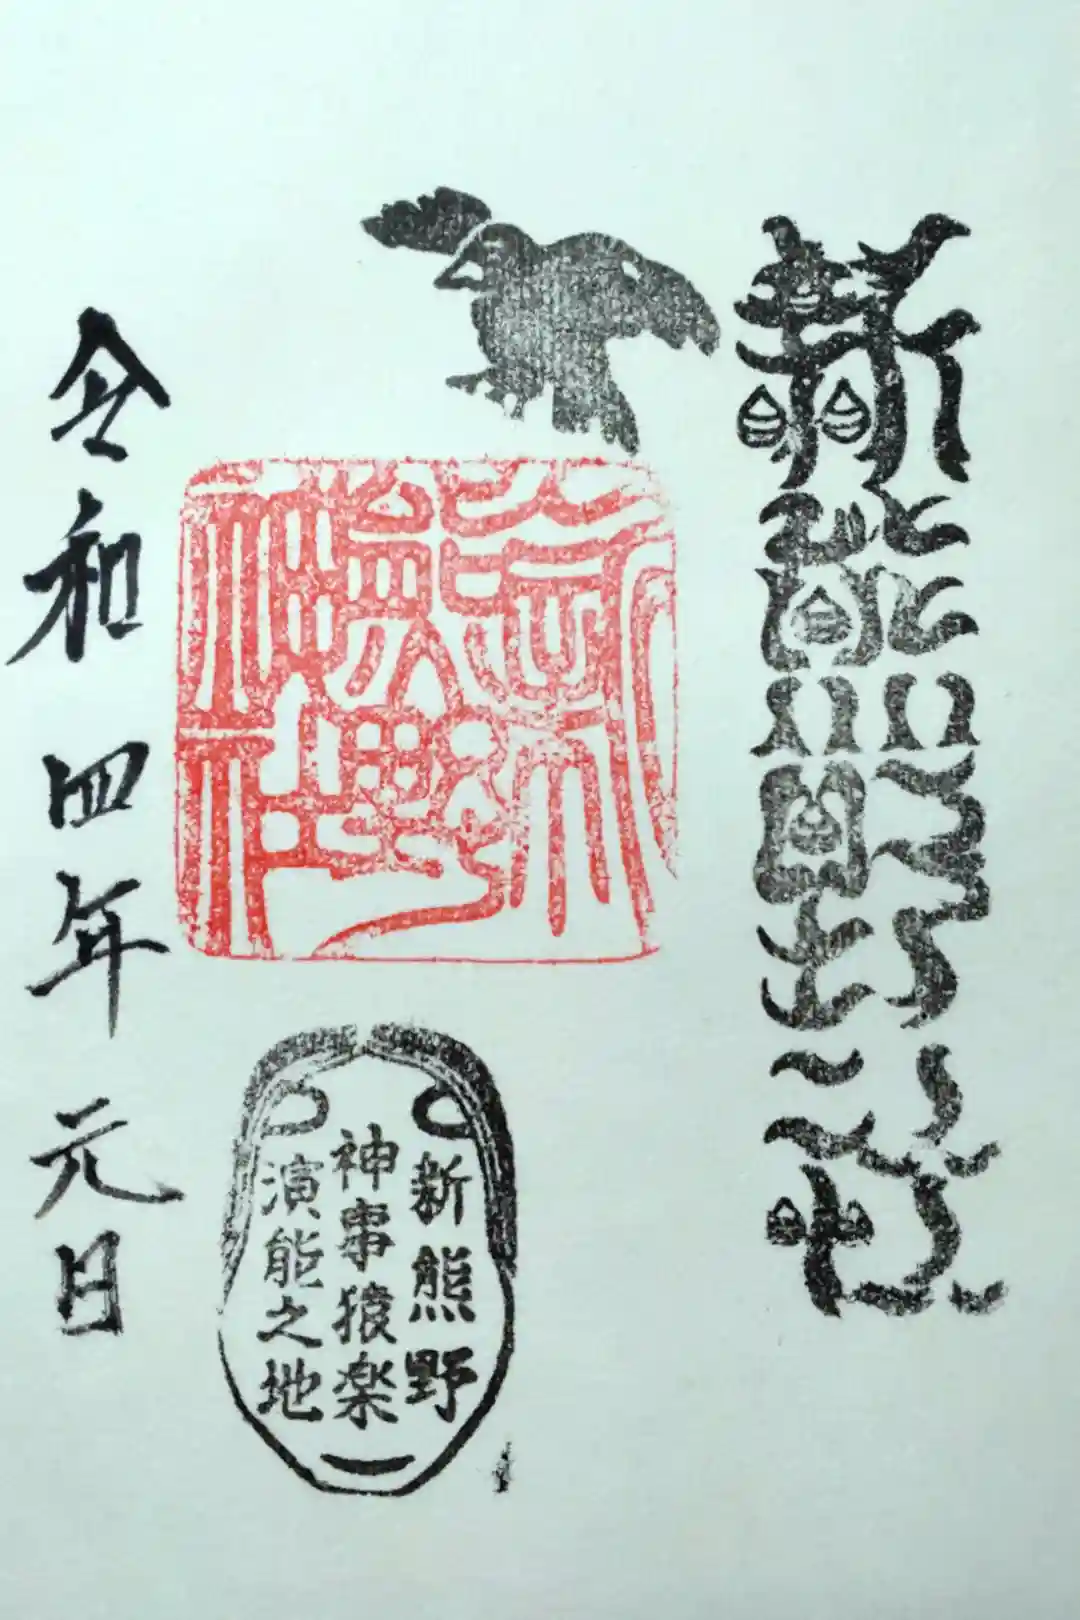 新熊野社
新熊野神社
新熊野
神事猿楽
演能之地
令和四年元日